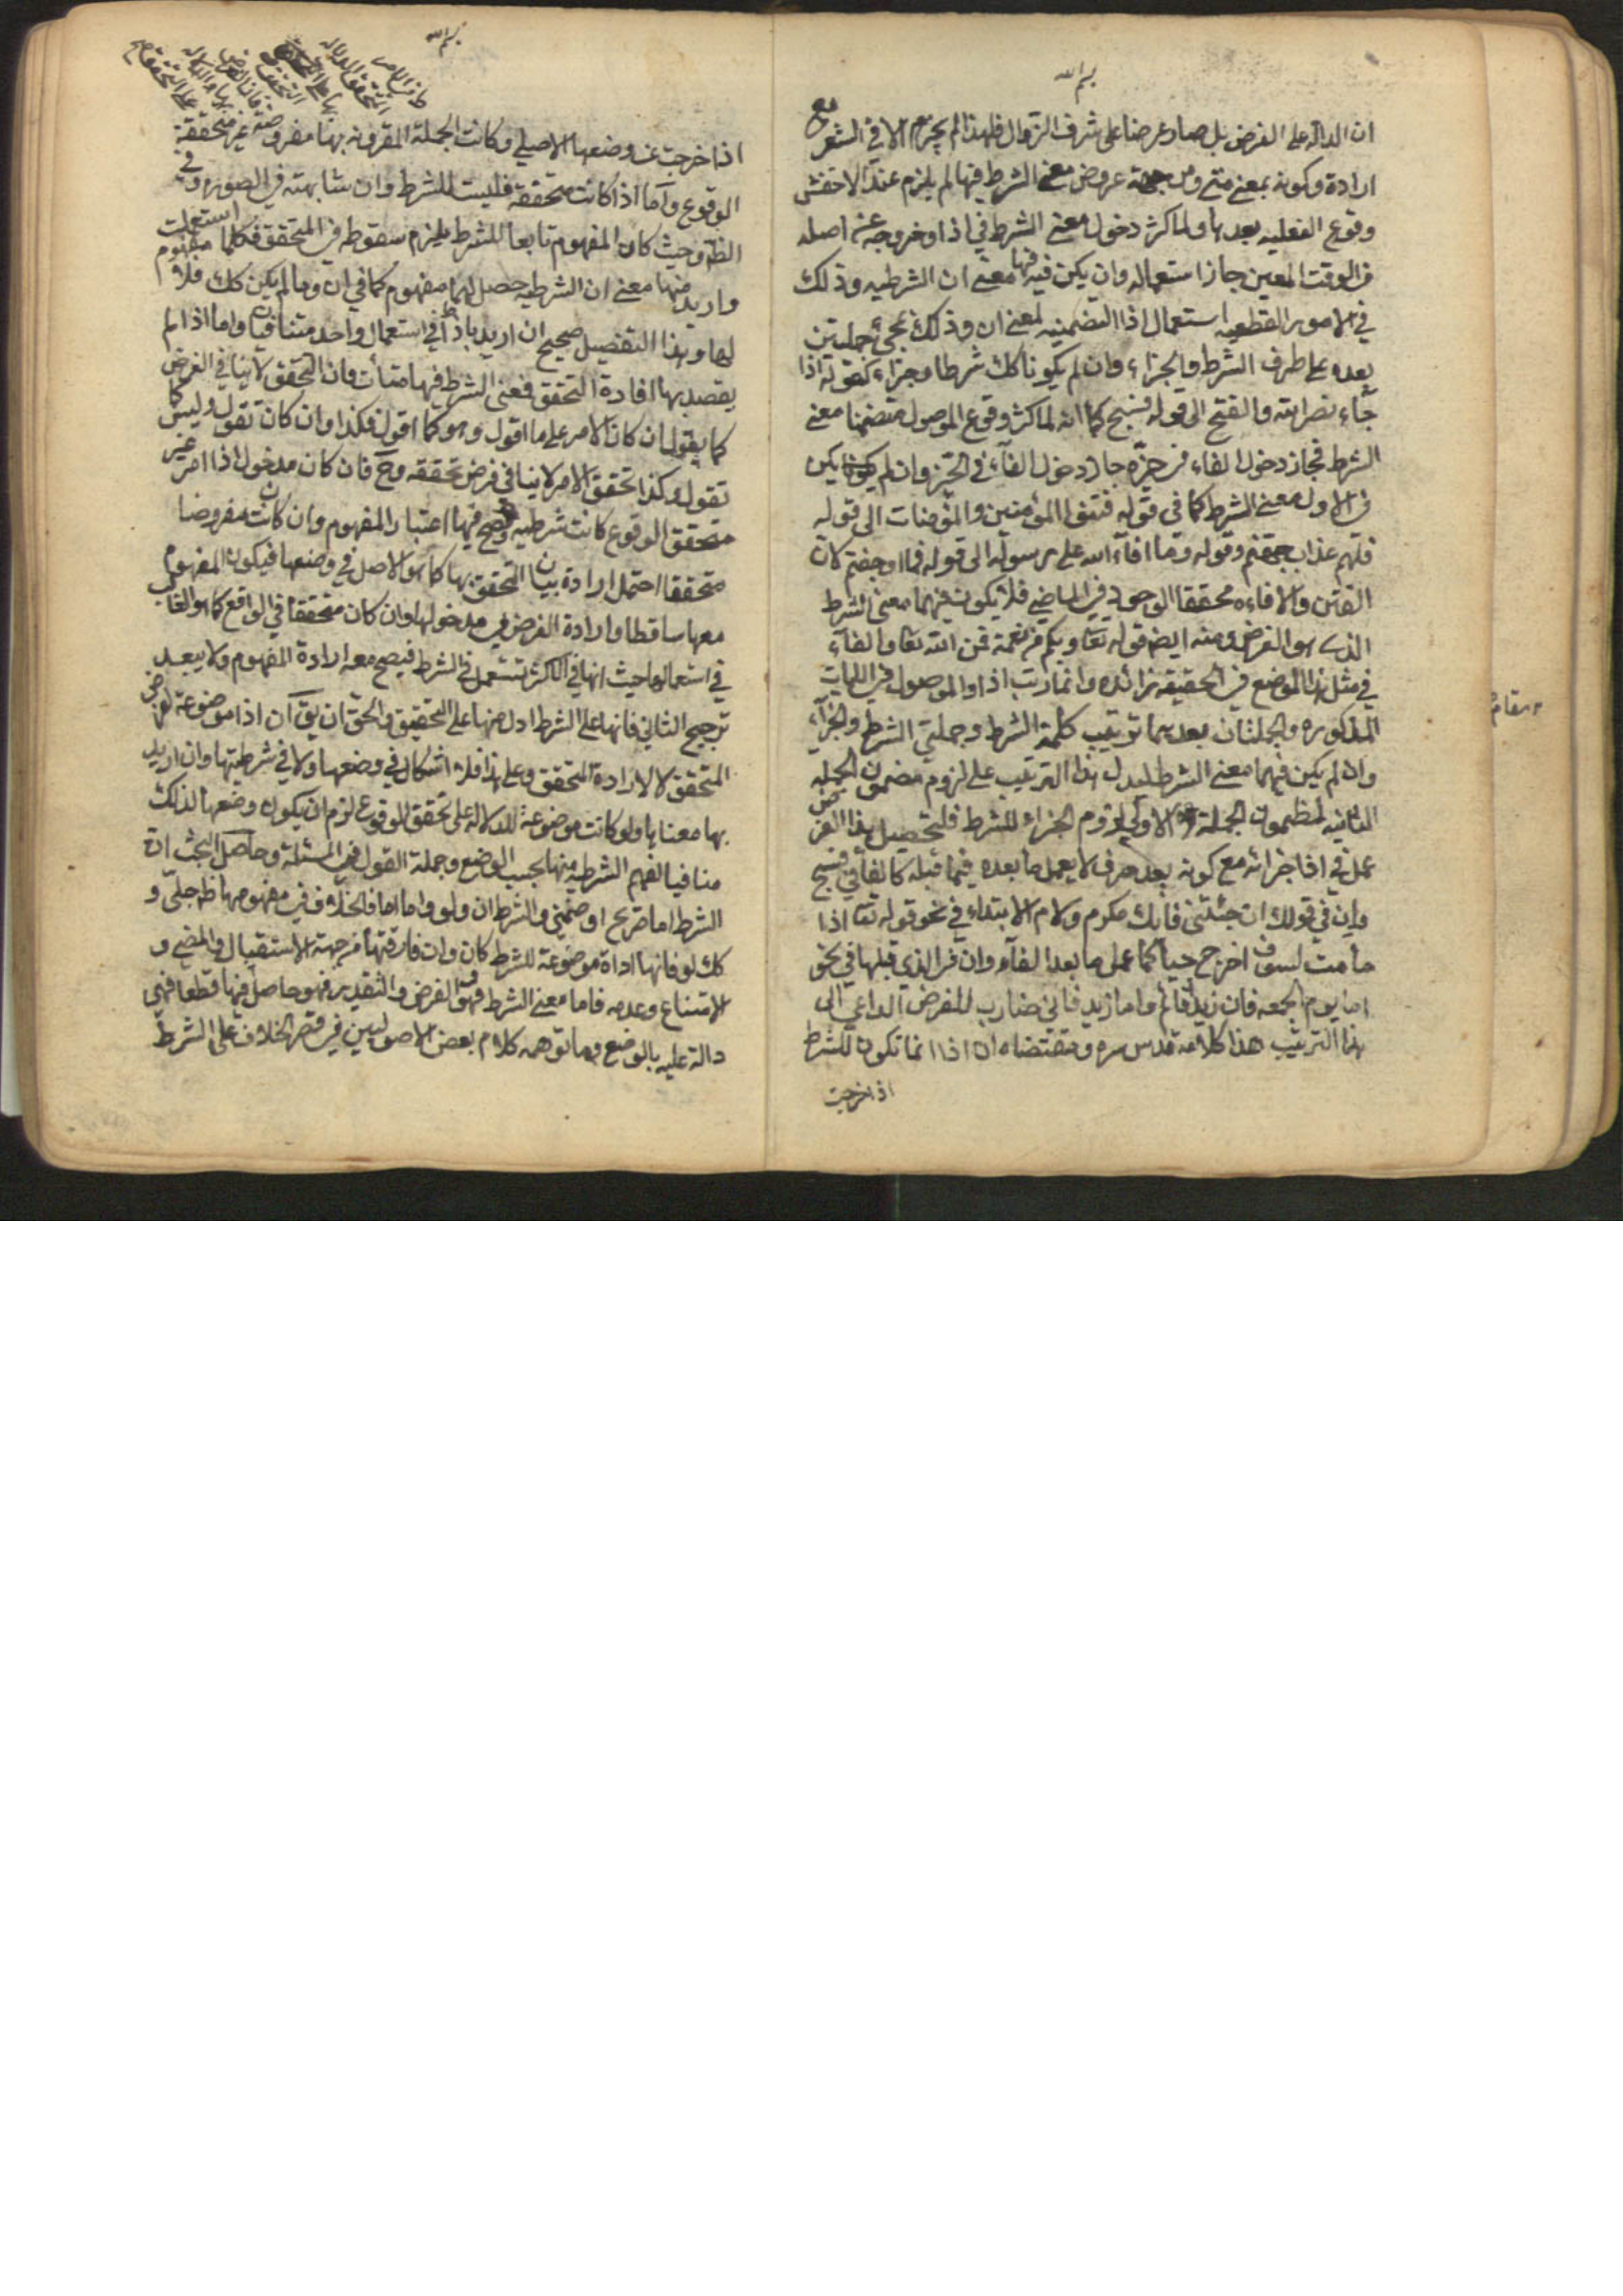 بسم الله
ان الدالة على الفرض بل صار عرضنا على شرف الزوال فلهذا لم يجزم الا في الشعر مع
ارادة وكونه بمعنى متى ومن جهة عروض معنى الشرط فيها لم يلزم عند الاخفش
وقوع الفعليه بعدها ولما كثر دخول معنى الشرط في اذا وخروجه عن اصله
من الوقت المعين جاز استعماله وان لم يكن فيها معنى ان الشرطيه وذلك
في الامور القطعيه استعمال اذا المتضمنه لمعنى ان وذلك بمجئ جملتين
بعده على طرف الشرط والجزاء وان لم يكونا كك شرطا وجزاء كقوله اذا
جاء نصر الله والفتح الى قوله فسبح كما انه لما كثر وقوع الموصول متضمنا معنى
الشرط فجاز دخول الفاء في حيزه جاز دخول الفآء في الخبر وان لم يكن
في الاول معنى الشرط كما في قوله فتنوا المؤمنين والمؤمنات الى قوله
فلهم عذاب جهنم وقوله وما افآء الله على رسوله الى قوله فما اوجفتم لان
الفتن والافاءه محققا الوجود في الماضي فلا يكون فيهما معنى الشرط
الذى هو الفرض ومنه ايضا قوله تعا وما بكم من نعمة فمن الله تعا والفآء
في مثل هذا الموضع في الحقيقه زائده وانما رتب اذا والموصول في الايات
المذكوره والجملتان بعدهما ترتيب كلمة الشرط وجملتي الشرط والجزآء
وان لم يكن فيهما معنى الشرط ليدل هذا الترتيب على لزوم مضمون الجملة
الثانيه لمضمون الجملة الاولى لزوم الجزاء للشرط فلتحصيل هذا الغرض
عمل في اذا جزائه مع كونه بعد حرف لا يعمل ما بعده فيما قبله كالفآ في فسبح
وان في قولك ان جئتني فانك مكرم ولام الابتداء في نحو قوله تعا اذا
ما مت لسوف اخرج حيا كما عمل ما بعد الفآء وان في الذي قبلها في نحو
اما يوم الجمعه فان زيدا قائم واما زيد فاني ضارب للغرض الداعي الى
هذا الترتيب هذا كلامه قدس سره ومقتضاه ان اذا انما تكون للشرط
اذا خرجت
بسم الله
اذا خرجت عن وضعها الاصلي وكانت الجملة المقرونه بها مفروضة غير متحققة
الوقوع وآما اذا كانت متحققة فليست للشرط وان شابهته في الصوره وفي
الظ وحيث كان المفهوم تابعا للشرط يلزم سقوطه في المتحقق فكلما استعملت
واريد منها معنى ان الشرطيه حصل لها مفهوم كما في ان وما لم يكن كك فلا مفهوم
لها وهذا التفصيل صحيح ان اريد باذا في استعمال واحد متنافيان واما اذا لم
يقصد بها افادة التحقق فمعنى الشرط فيها متأت فان التحقق لا ينافي الفرض
كما يقول ان كان الامر على ما اقول وهو كما اقول فكذا وان كان تقول وليس كما
تقول وكذا تحقق الامر لا ينافي فرض تحققه وح فان كان مدخول اذا امر غير
متحقق الوقوع كانت شرطيه وصح فيها اعتبار المفهوم وان كانت مفروضا
متحققا احتمل ارادة بيان التحقق بها كما هو الاصل في وضعها فيكون المفهوم
معها ساقطا وارادة الفرض في مدخولها وان كان متحققا في الواقع كما هو الغالب
في استعمالها حيث انها في الاكثر تستعمل في الشرط فيصح معه ارادة المفهوم ولا يبعد
ترجيح الثاني فانها على الشرط ادل منها على التحقيق والحق ان يق آن اذا موضوعة لفرض
المتحقق لا لارادة التحقق وعلى هذا فلا اشكال في وضعها ولا في شرطيتها وان اريد
بها معناها ولو كانت موضوعة للدلالة على تحقق الوقوع لزم ان يكون وضعها لذلك
منافيا لفهم الشرطية منها بحسب الوضع وجملة القول في المسئلة وحاصل البحث ان
الشرط اما صريح او ضمني والشرط ان ولو واما اما فالخلاف في مفهومها ظ جلي و
كك لو فانها اداة موضوعة للشرط كان وان فارقتها من جهة الاستقبال والمضي و
الامتناع وعدمه فاما معنى الشرط وهو الفرض والتقدير فهو حاصل فيها قطعا فهي
دالة عليه بالوضع وما توهمه كلام بعض الاصوليين في قصر الخلاف على الشرط